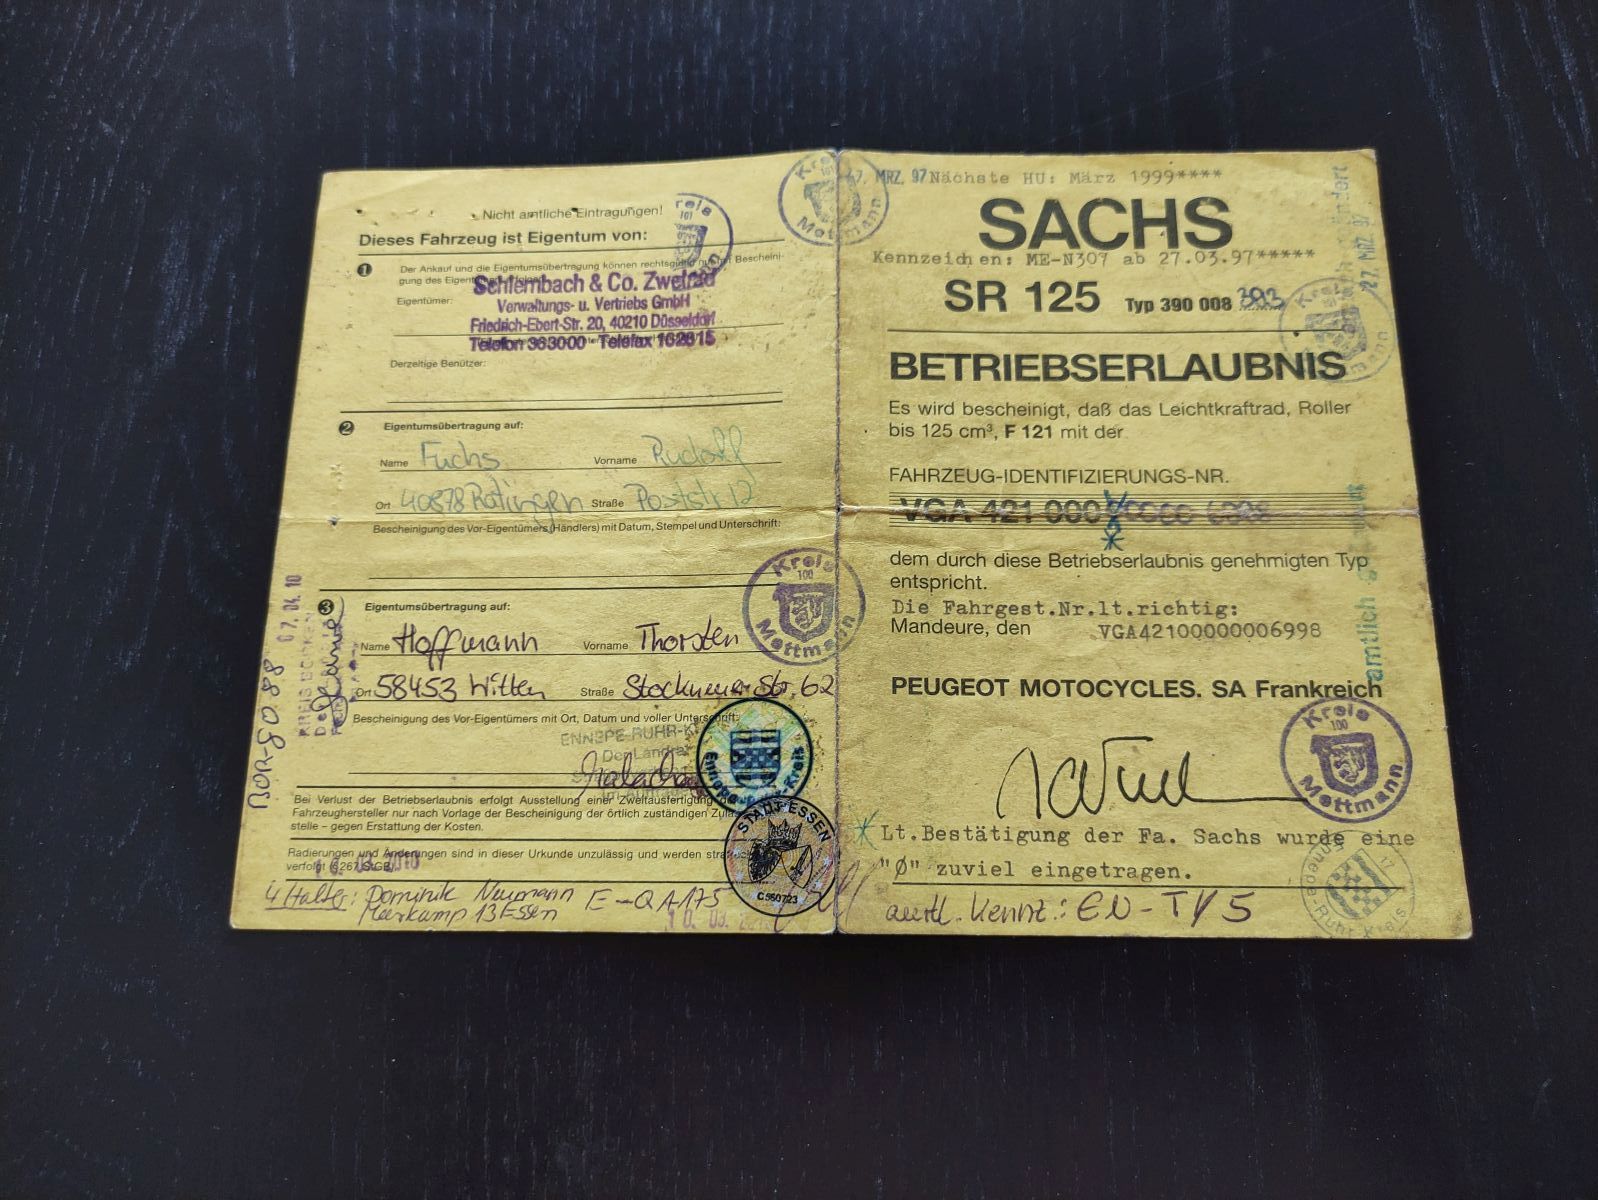 Nicht amtliche Eintragungen!
Dieses Fahrzeug ist Eigentum von:
1
Der Ankauf und die Eigentumsübertragung können rechtsgültig nur mit Bescheini-
gung des
Eigentümer:
Schlembach & Co. Zweirad
Verwaltungs- u. Vertriebs GmbH
Friedrich-Ebert-Str. 20, 40210 Düsseldorf
Telefon 363000 Telefax 162815
Derzeitige Benutzer:
2
Eigentumsübertragung auf:
Name Fuchs Vorname Rudolf
Ort 40878 Ratingen Straße Poststr 12
Bescheinigung des Vor-Eigentümers (Händlers) mit Datum, Stempel und Unterschrift:
3
Eigentumsübertragung auf:
Name Hoffmann Vorname Thorsten
Ort 58453 Witten Straße Stockumer Str. 62
Bescheinigung des Vor-Eigentümers mit Ort, Datum und voller Unterschrift:
ENNEPE-RUHR-K
Der Landrat
Bei Verlust der Betriebserlaubnis erfolgt Ausstellung einer Zweitausfertigung
Fahrzeughersteller nur nach Vorlage der Bescheinigung der örtlich zuständigen
stelle – gegen Erstattung der Kosten.
Radierungen und Änderungen sind in dieser Urkunde unzulässig und werden
verfolgt (§ 267 StGB)
4 Halter: Dominik Naumann E-QA175
13 Essen
BOR-
07. 04. 10
Kreis
101
Kreis
101
Mettmann
Kreis
100
Mettmann
Ennepe-Ruhr-Kreis
STADT ESSEN
C550723
MRZ. 97 Nächste HU: März 1999****
SACHS
Kennzeichen: ME-N307 ab 27.03.97*****
SR 125 Typ 390 008 303
BETRIEBSERLAUBNIS
Es wird bescheinigt, daß das Leichtkraftrad, Roller
bis 125 cm³, F 121 mit der
FAHRZEUG-IDENTIFIZIERUNGS-NR.
VGA 421 000
dem durch diese Betriebserlaubnis genehmigten Typ
entspricht.
Die Fahrgest.Nr.lt.richtig:
Mandeure, den VGA42100000006998
PEUGEOT MOTOCYCLES. SA Frankreich
Kreis
100
Mettmann
* Lt.Bestätigung der Fa. Sachs wurde eine
"Ø" zuviel eingetragen.
amtl. Kennz.: EN-TY 5
amtlich
27. MRZ. 97
Ennepe-Ruhr-Kreis
17